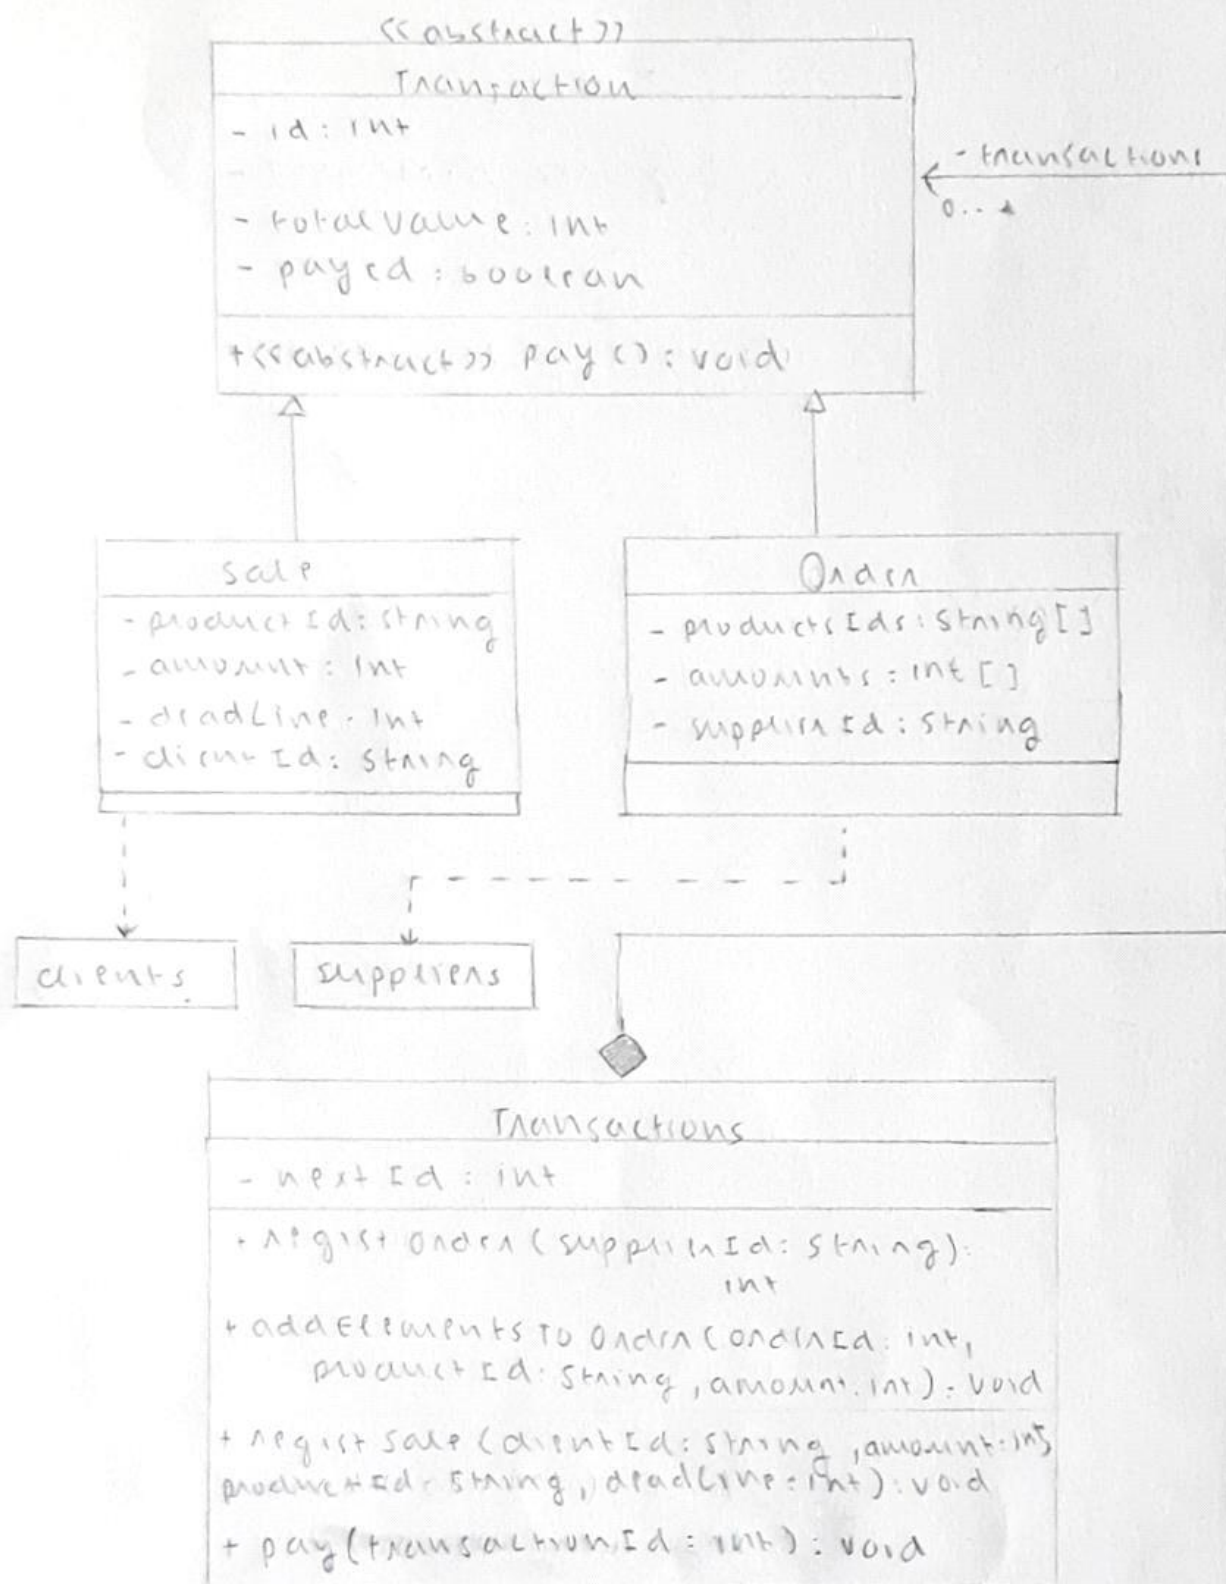 <<abstract>>
Transaction
- id: int
- transactions
0..*
- totalValue: int
- payed: boolean
+<<abstract>> pay(): void
Sale
- productId: String
- amount: int
- deadLine: int
- clientId: String
Order
- productsIds: String[]
- amounts: int[]
- supplierId: String
clients
suppliers
Transactions
- nextId: int
+ registOrder(supplierId: String):
int
+ addElementsToOrder(orderId: int,
productId: String, amount: int): void
+ registSale(clientId: String, amount: int,
productId: String, deadLine: int): void
+ pay(transactionId: int): void